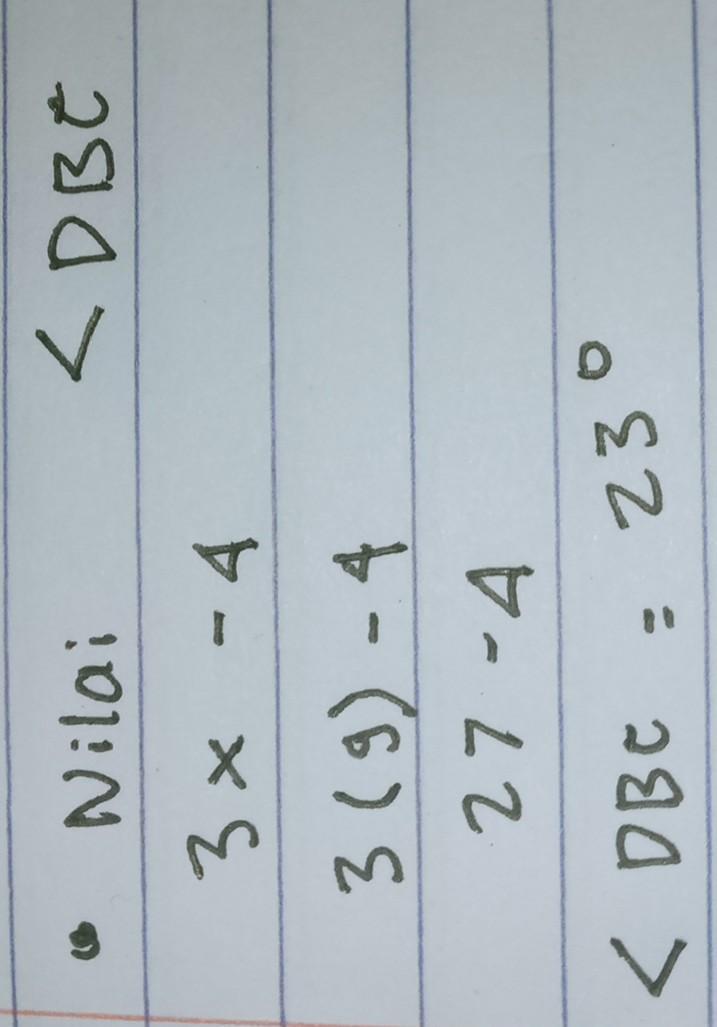 • Nilai < DBC
3x - 4
3(9) - 4
27 - 4
< DBC = 23°